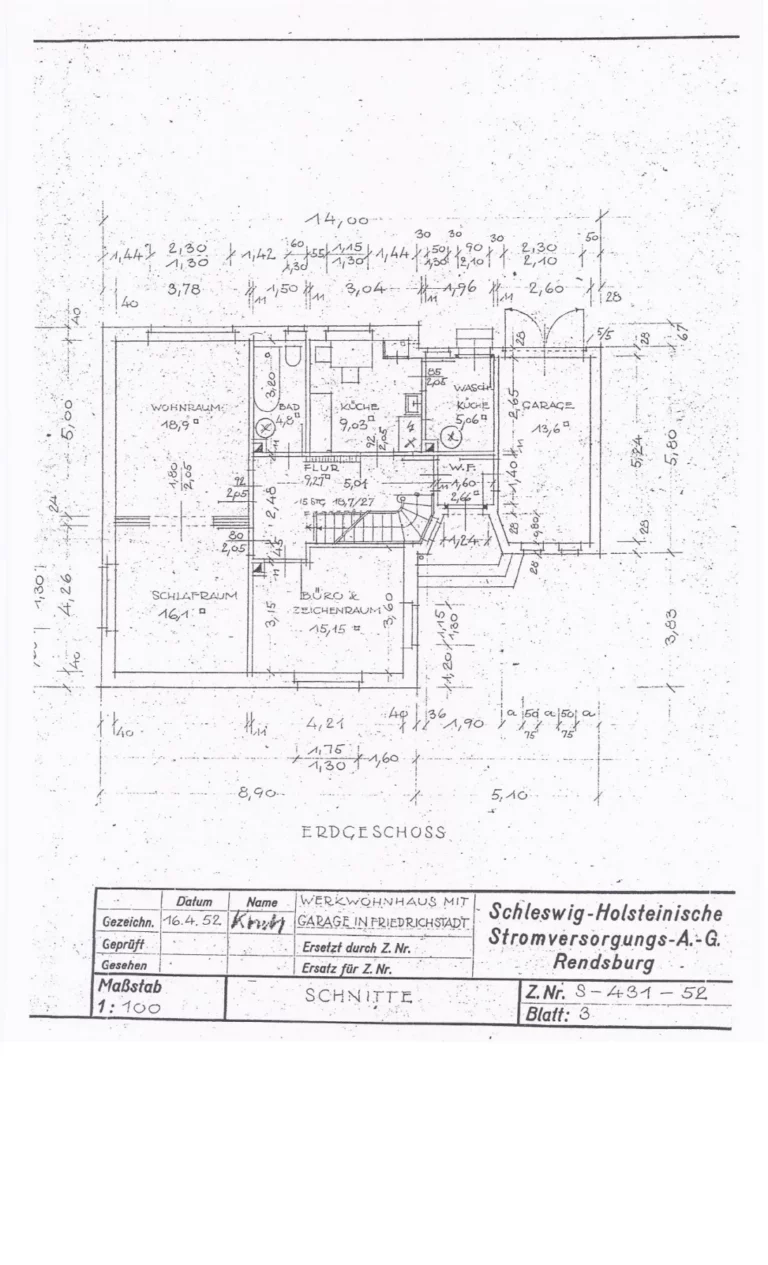 14,00
30 30 30 50
1,44 2,30 1,42 60 55 1,15 1,44 50 90 2,30
1,30 1,30 1,30 1,30 2,10 2,10
40 3,78 11 1,50 11 3,04 11 1,96 11 2,60 28
40 28 5/5 28 67
85
2,05
3,20 WASCH 2,65
WOHNRAUM BAD KÜCHE KÜCHE GARAGE
18,9 4,8 9,03 5,06 13,6
5,00 5,24 5,80
92
2,05
11
FLUR W.F.
1,80 92 9,27 5,01 11 1,60 1,40
2,05 2,05 2,66
24 2,48 15 STG 18,7/27
80 1,24 28 28
2,05 45
11 28
1,30 4,26
SCHLAFRAUM BÜRO &
ZEICHENRAUM
16,1 3,15 15,15 3,60 1,15 3,83
1,30
40 1,20
40 11 4,21 40 36 1,90 a 50 a 50 a
75 75
1,75 1,60
1,30
8,90 5,10
ERDGESCHOSS
Datum Name WERKWOHNHAUS MIT
Gezeichn. 16.4.52 GARAGE IN FRIEDRICHSTADT
Geprüft Ersetzt durch Z. Nr.
Gesehen Ersatz für Z. Nr.
Schleswig-Holsteinische
Stromversorgungs-A.-G.
Rendsburg
Maßstab
1: 100
SCHNITTE
Z.Nr. S-431-52
Blatt: 3